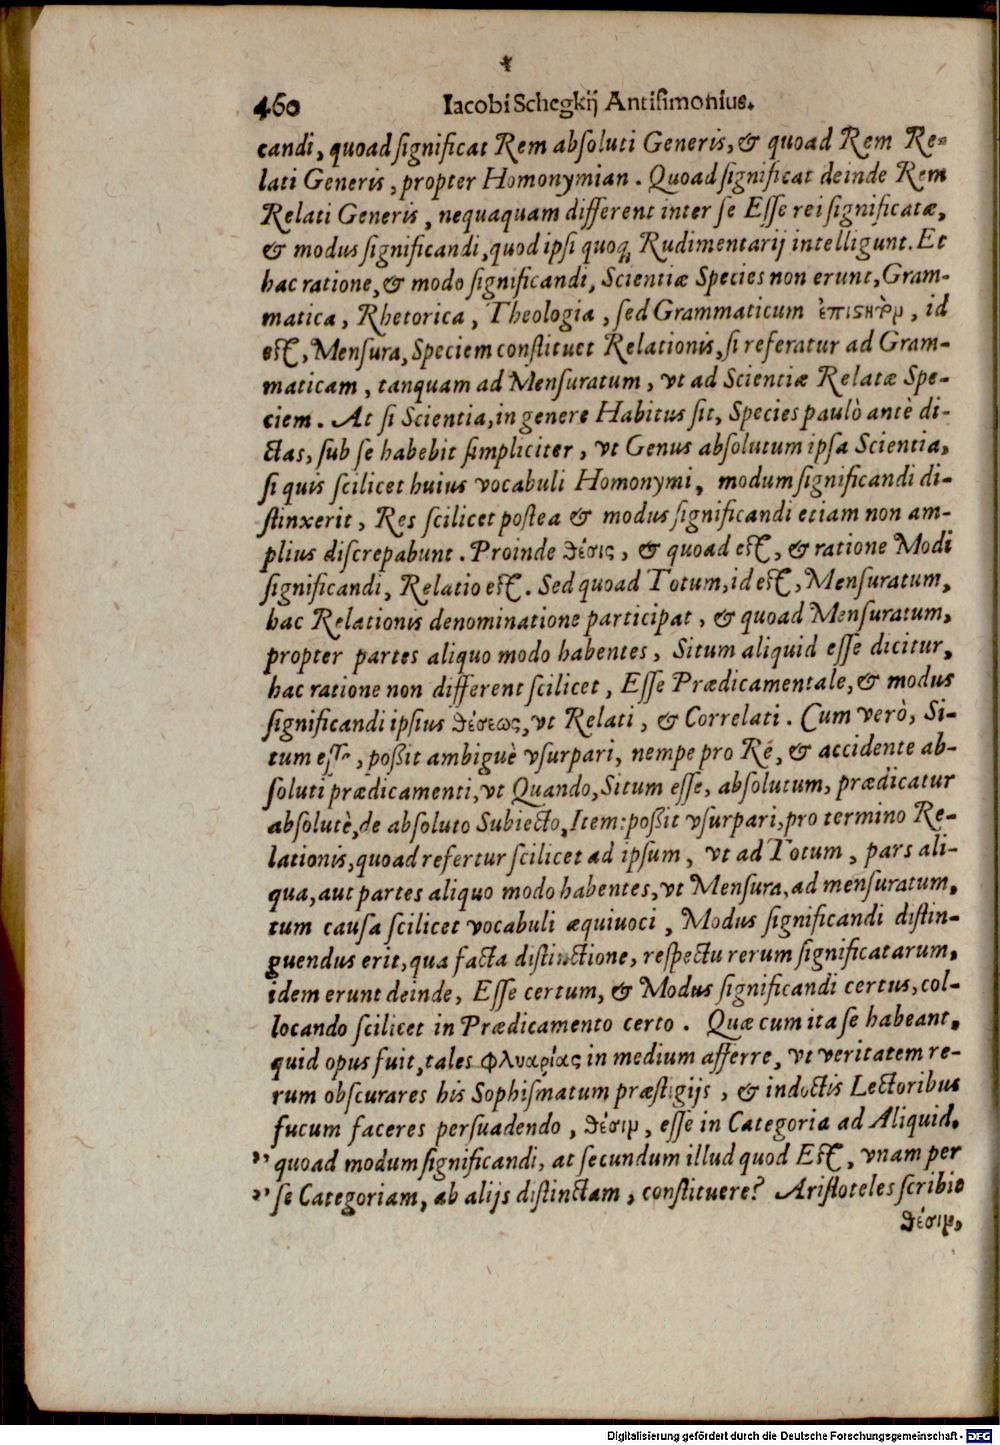 460 Iacobi Schegkij Antisimonius.
candi, quoad ſignificat Rem abſoluti Generis, & quoad Rem Re-
lati Generis, propter Homonymian. Quoad ſignificat deinde Rem
Relati Generis, nequaquam different inter ſe Eſſe rei ſignificatæ,
& modus ſignificandi, quod ipſi quoq; Rudimentarij intelligunt. Et
hac ratione, & modo ſignificandi, Scientiæ Species non erunt, Gram-
matica, Rhetorica, Theologia, ſed Grammaticum , id
eſt, Menſura, Speciem conſtituet Relationis, ſi referatur ad Gram-
maticam, tanquam ad Menſuratum, vt ad Scientiæ Relatæ Spe-
ciem. At ſi Scientia, in genere Habitus ſit, Species paulò antè di-
ctas, ſub ſe habebit ſimpliciter, vt Genus abſolutum ipſa Scientia,
ſi quis ſcilicet huius vocabuli Homonymi, modum ſignificandi di-
ſtinxerit, Res ſcilicet poſtea & modus ſignificandi etiam non am-
plius diſcrepabunt. Proinde θέσις, & quoad eſt, & ratione Modi
ſignificandi, Relatio eſt. Sed quoad Totum, id eſt, Menſuratum,
hac Relationis denominatione participat, & quoad Menſuratum,
propter partes aliquo modo habentes, Situm aliquid eſſe dicitur,
hac ratione non different ſcilicet, Eſſe Prædicamentale, & modus
ſignificandi ipſius θέσεως, vt Relati, & Correlati. Cum verò, Si-
tum eſſe, poßit ambiguè vſurpari, nempe pro Re, & accidente ab-
ſoluti prædicamenti, vt Quando, Situm eſſe, abſolutum, prædicatur
abſolutè, de abſoluto Subiecto, Item: poßit vſurpari, pro termino Re-
lationis, quoad refertur ſcilicet ad ipſum, vt ad Totum, pars ali-
qua, aut partes aliquo modo habentes, vt Menſura, ad menſuratum,
tum cauſa ſcilicet vocabuli æquiuoci, Modus ſignificandi diſtin-
guendus erit, qua facta diſtinctione, reſpectu rerum ſignificatarum,
idem erunt deinde, Eſſe certum, & Modus ſignificandi certus, col-
locando ſcilicet in Prædicamento certo. Quæ cum ita ſe habeant,
quid opus fuit, tales φλυαρίας in medium afferre, vt veritatem re-
rum obſcurares his Sophiſmatum præſtigijs, & indoctis Lectoribus
fucum faceres perſuadendo, θέσιν, eſſe in Categoria ad Aliquid,
„ quoad modum ſignificandi, at ſecundum illud quod Eſt, vnam per
„ ſe Categoriam, ab alijs diſtinctam, conſtituere? Ariſtoteles ſcribit
θέσιν,
Digitalisierung gefördert durch die Deutsche Forschungsgemeinschaft - DFG